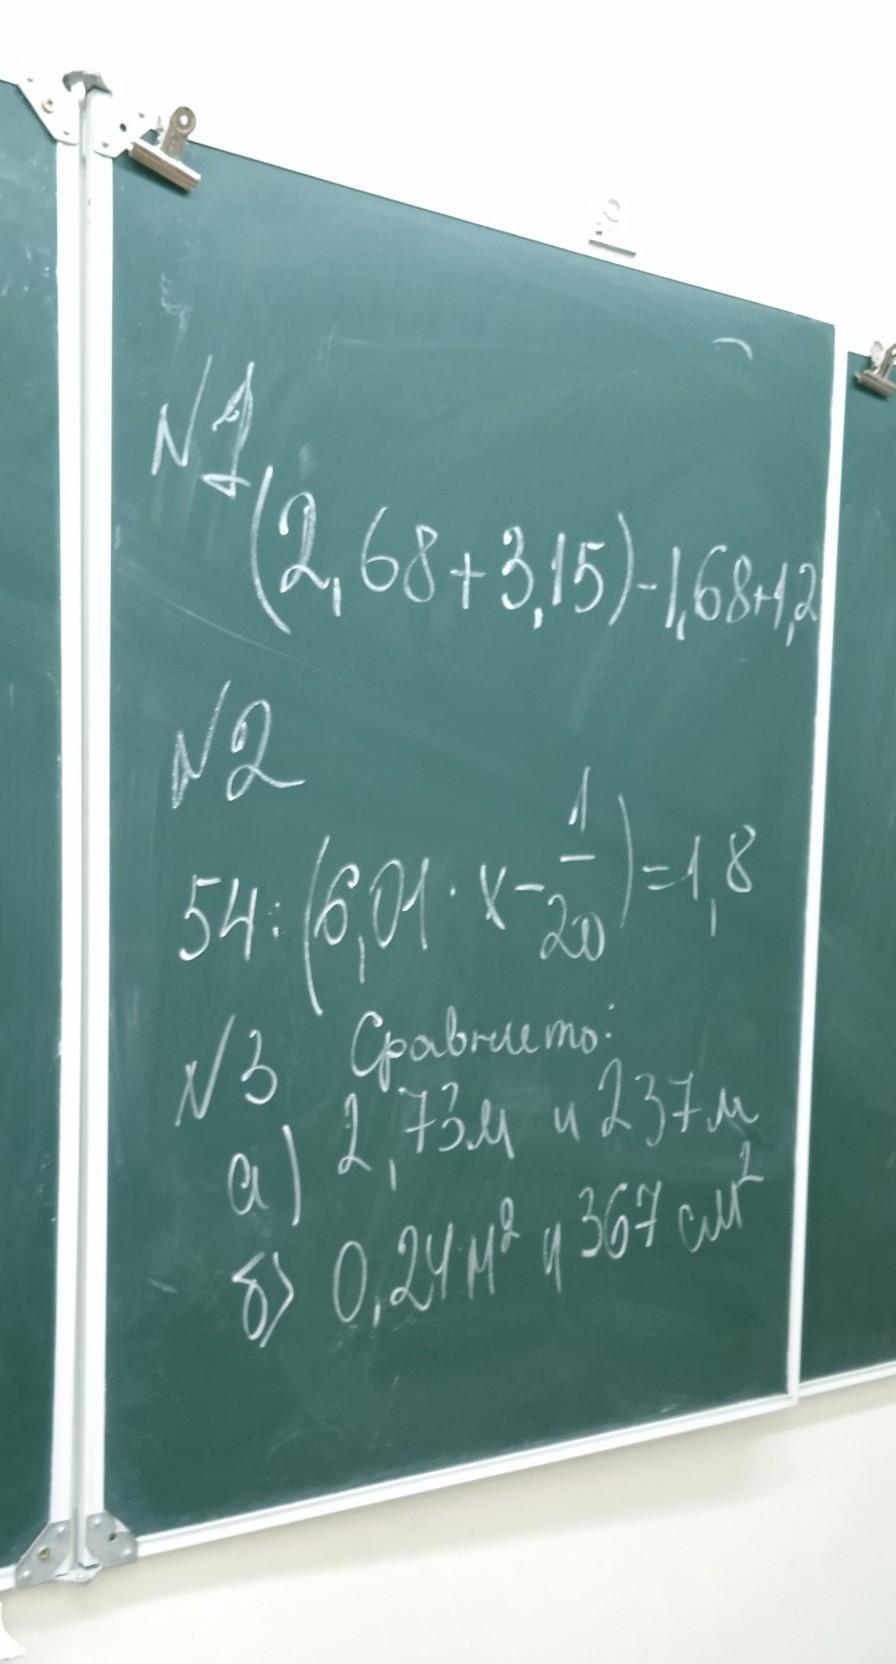 N1
(2,68+3,15)-1,68+1,2
N2
54:(6,01·x-1/20)=1,8
N3 Сравнить:
а) 2,73м и 237м
б) 0,24м² и 367 см²